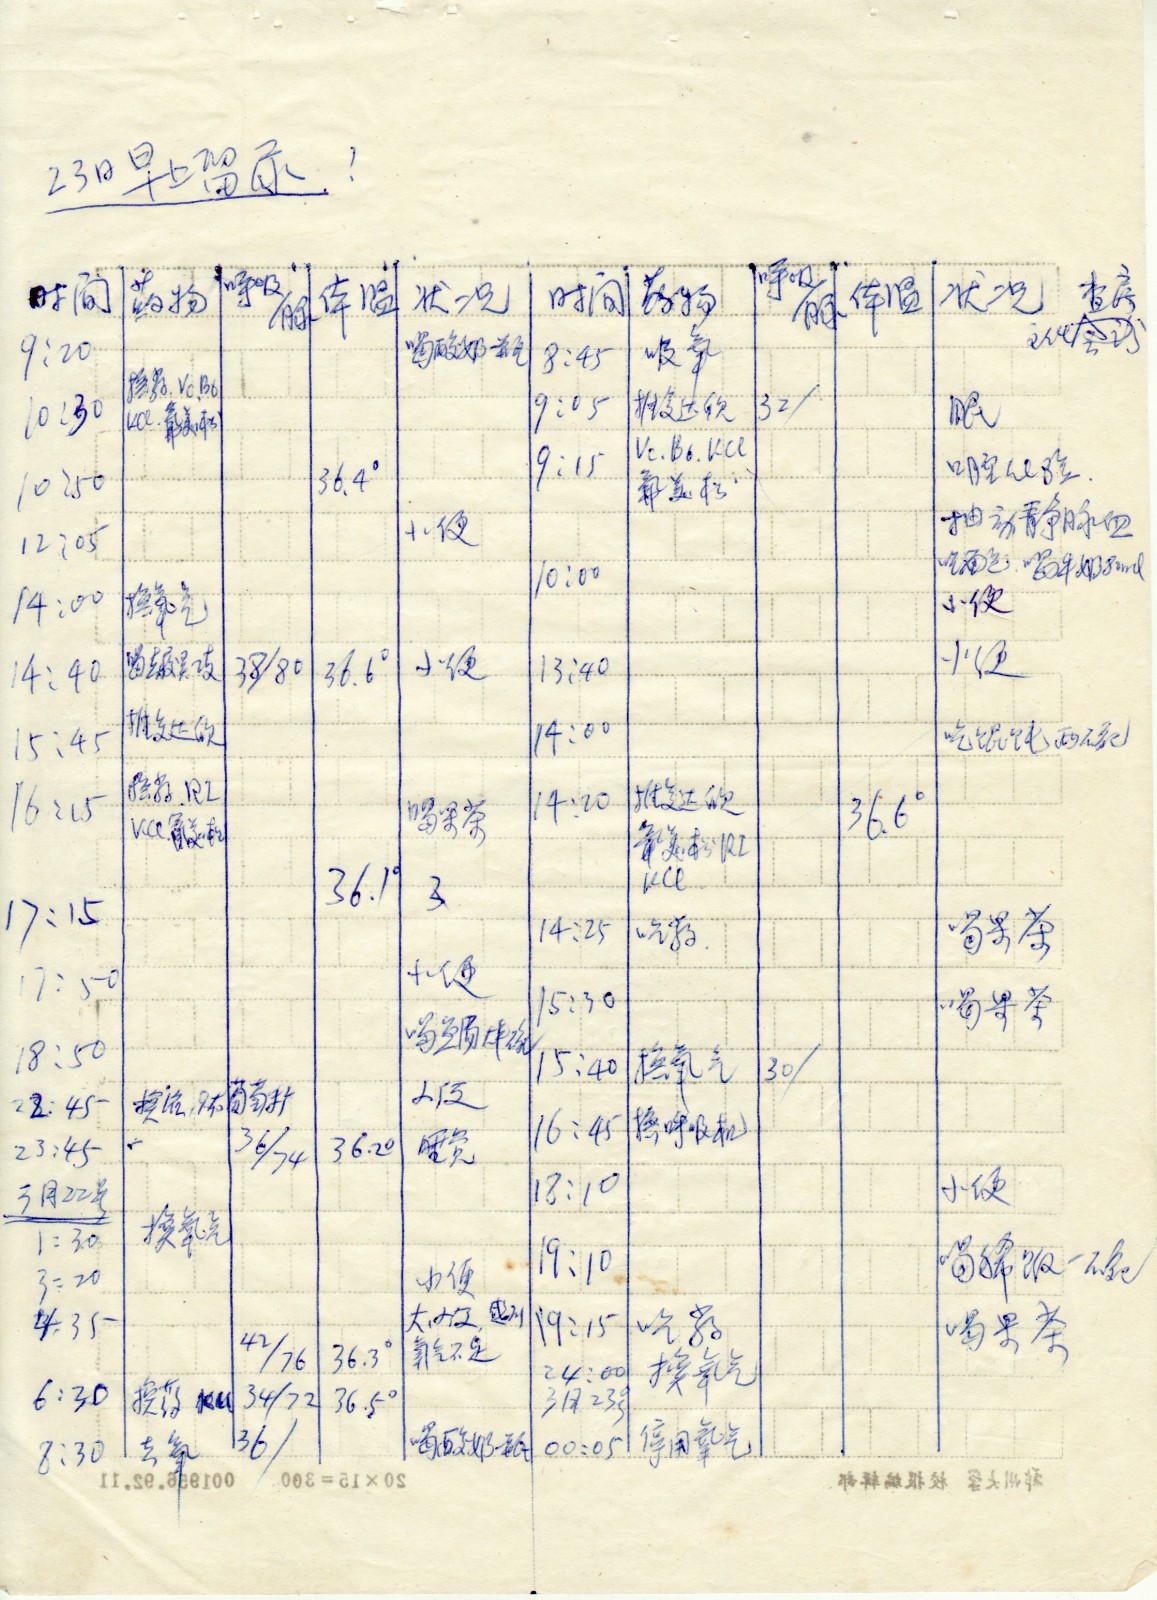 23日早上留尿!
时间 药物 呼吸/脉 体温 状况
9:20 喝酸奶一瓶
10:30 换药.Vc.B6
KCl.氟美松
10:50 36.4°
12:05 小便
14:00 换氧气
14:40 38/80 36.6° 小便
15:45 推复达欣
16:15 换药.RI 喝果茶
KCl.氟美松
17:15 36.1°
17:50 小便
18:50
22:45 葡萄针 小便
23:45 36/74 36.2° 睡觉
3月22号
1:30 换氧气
3:20 小便
4:35 大小便,感到
42/76 36.3° 氧气不足
6:30 换药 KCl 34/72 36.5°
8:30 去氧 36/ 喝酸奶一瓶
时间 药物 呼吸/脉 体温 状况 查房
8:45 吸氧
9:05 推复达欣 32/ 眠
9:15 Vc.B6.KCl 口腔化验.
氟美松
抽动静脉血
10:00 吃面包.喝牛奶
小便
13:40 小便
14:00 吃馄饨两碗
14:20 推复达欣 36.6°
氟美松RI
KCl
14:25 吃药. 喝果茶
15:30 喝果茶
15:40 换氧气 30/
16:45 换呼吸机
18:10 小便
19:10 喝稀饭一碗
19:15 吃药 喝果茶
24:00 换氧气
3月23号
00:05 停用氧气
郑州大学 校报编辑部
20×15=300
001956.92.11